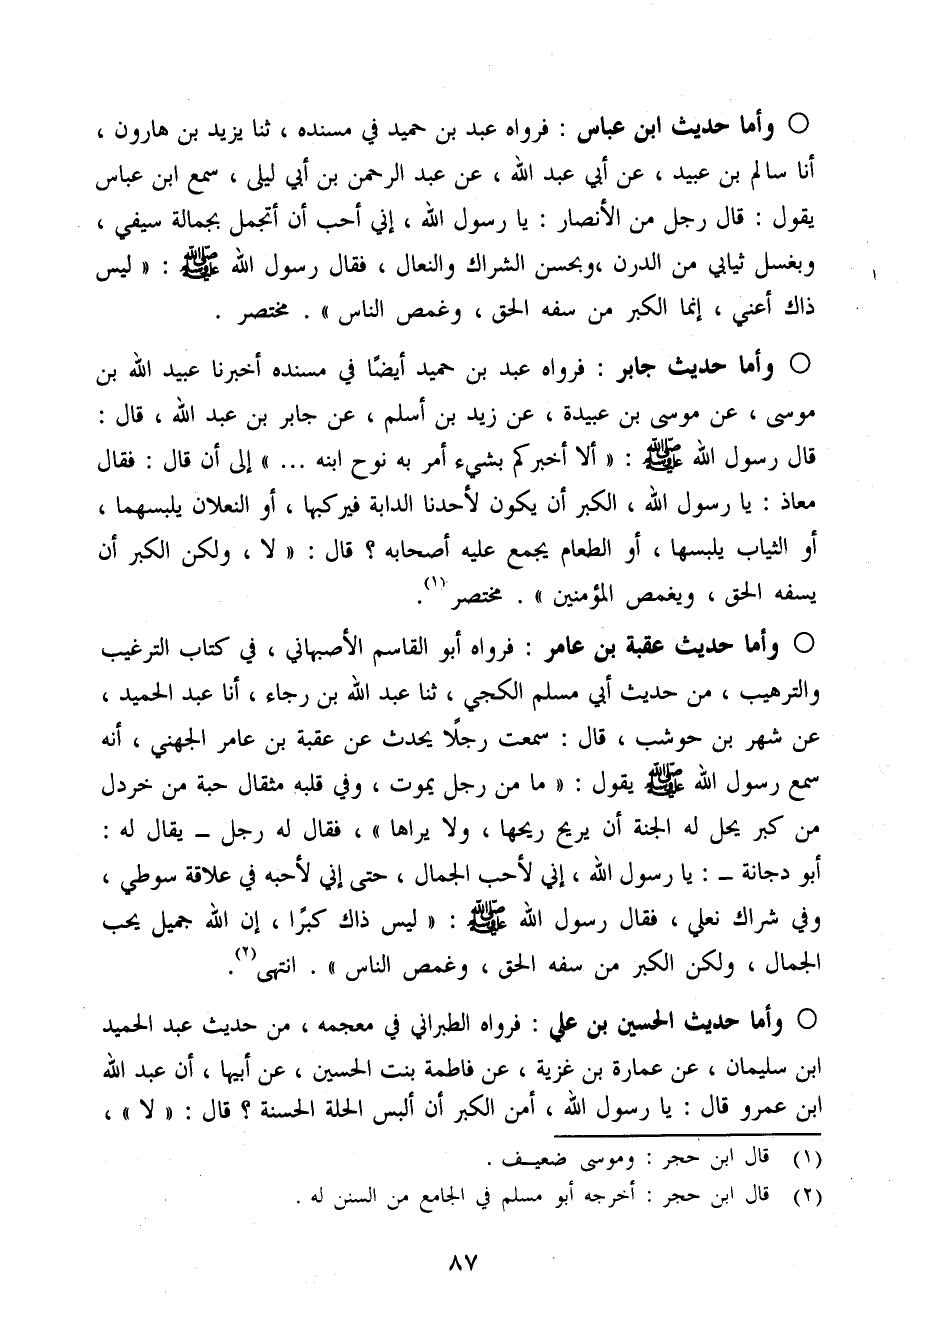 ○ وأما حديث ابن عباس : فرواه عبد بن حميد في مسنده ، ثنا يزيد بن هارون ،
أنا سالم بن عبيد ، عن أبي عبد الله ، عن عبد الرحمن بن أبي ليلى ، سمع ابن عباس
يقول : قال رجل من الأنصار : يا رسول الله ، إني أحب أن أتجمل بجمالة سيفي ،
وبغسل ثيابي من الدرن ،وبحسن الشراك والنعال ، فقال رسول الله ﷺ : « ليس
ذاك أعني ، إنما الكبر من سفه الحق ، وغمص الناس » . مختصر .
○ وأما حديث جابر : فرواه عبد بن حميد أيضًا في مسنده أخبرنا عبيد الله بن
موسى ، عن موسى بن عبيدة ، عن زيد بن أسلم ، عن جابر بن عبد الله ، قال :
قال رسول الله ﷺ : « ألا أخبركم بشيء أمر به نوح ابنه ... » إلى أن قال : فقال
معاذ : يا رسول الله ، الكبر أن يكون لأحدنا الدابة فيركبها ، أو النعلان يلبسهما ،
أو الثياب يلبسها ، أو الطعام يجمع عليه أصحابه ؟ قال : « لا ، ولكن الكبر أن
يسفه الحق ، ويغمص المؤمنين » . مختصر(١).
○ وأما حديث عقبة بن عامر : فرواه أبو القاسم الأصبهاني ، في كتاب الترغيب
والترهيب ، من حديث أبي مسلم الكجي ، ثنا عبد الله بن رجاء ، أنا عبد الحميد ،
عن شهر بن حوشب ، قال : سمعت رجلًا يحدث عن عقبة بن عامر الجهني ، أنه
سمع رسول الله ﷺ يقول : « ما من رجل يموت ، وفي قلبه مثقال حبة من خردل
من كبر يحل له الجنة أن يريح ريحها ، ولا يراها » ، فقال له رجل ــ يقال له :
أبو دجانة ــ : يا رسول الله ، إني لأحب الجمال ، حتى إني لأحبه في علاقة سوطي ،
وفي شراك نعلي ، فقال رسول الله ﷺ : « ليس ذاك كبرًا ، إن الله جميل يحب
الجمال ، ولكن الكبر من سفه الحق ، وغمص الناس » . انتهى(٢).
○ وأما حديث الحسين بن علي : فرواه الطبراني في معجمه ، من حديث عبد الحميد
ابن سليمان ، عن عمارة بن غزية ، عن فاطمة بنت الحسين ، عن أبيها ، أن عبد الله
ابن عمرو قال : يا رسول الله ، أمن الكبر أن ألبس الحلة الحسنة ؟ قال : « لا » ،
(١) قال ابن حجر : وموسى ضعيف .
(٢) قال ابن حجر : أخرجه أبو مسلم في الجامع من السنن له .
٨٧